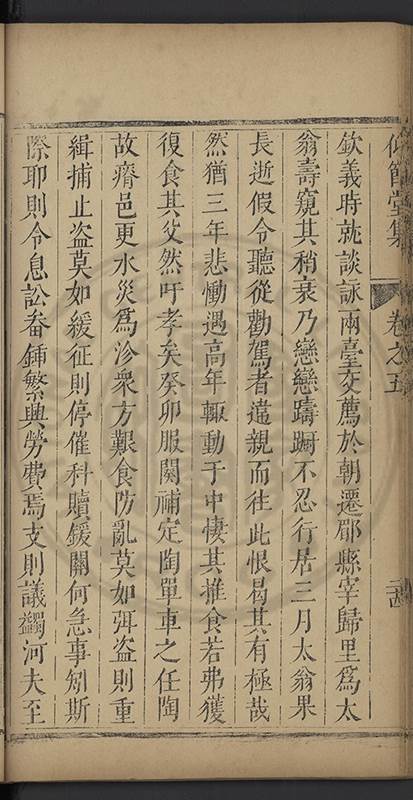 仰節堂集 卷之五
欽義時就談詠兩臺交薦於朝遷郿縣宰歸里爲太
翁壽窺其稍衰乃戀戀躊躕不忍行居三月太翁果
長逝假令聽從勸駕者遣親而往此恨曷其有極哉
然猶三年悲慟遇高年輒動于中悽其推食若弗獲
復食其父然吁孝矣癸卯服闋補定陶單車之任陶
故瘠邑更水災爲沴衆方艱食防亂莫如弭盜則重
緝捕止盜莫如緩征則停催科贖鍰關何急事矧斯
際耶則令息訟畚鍤繁興勞費焉支則議蠲河夫至